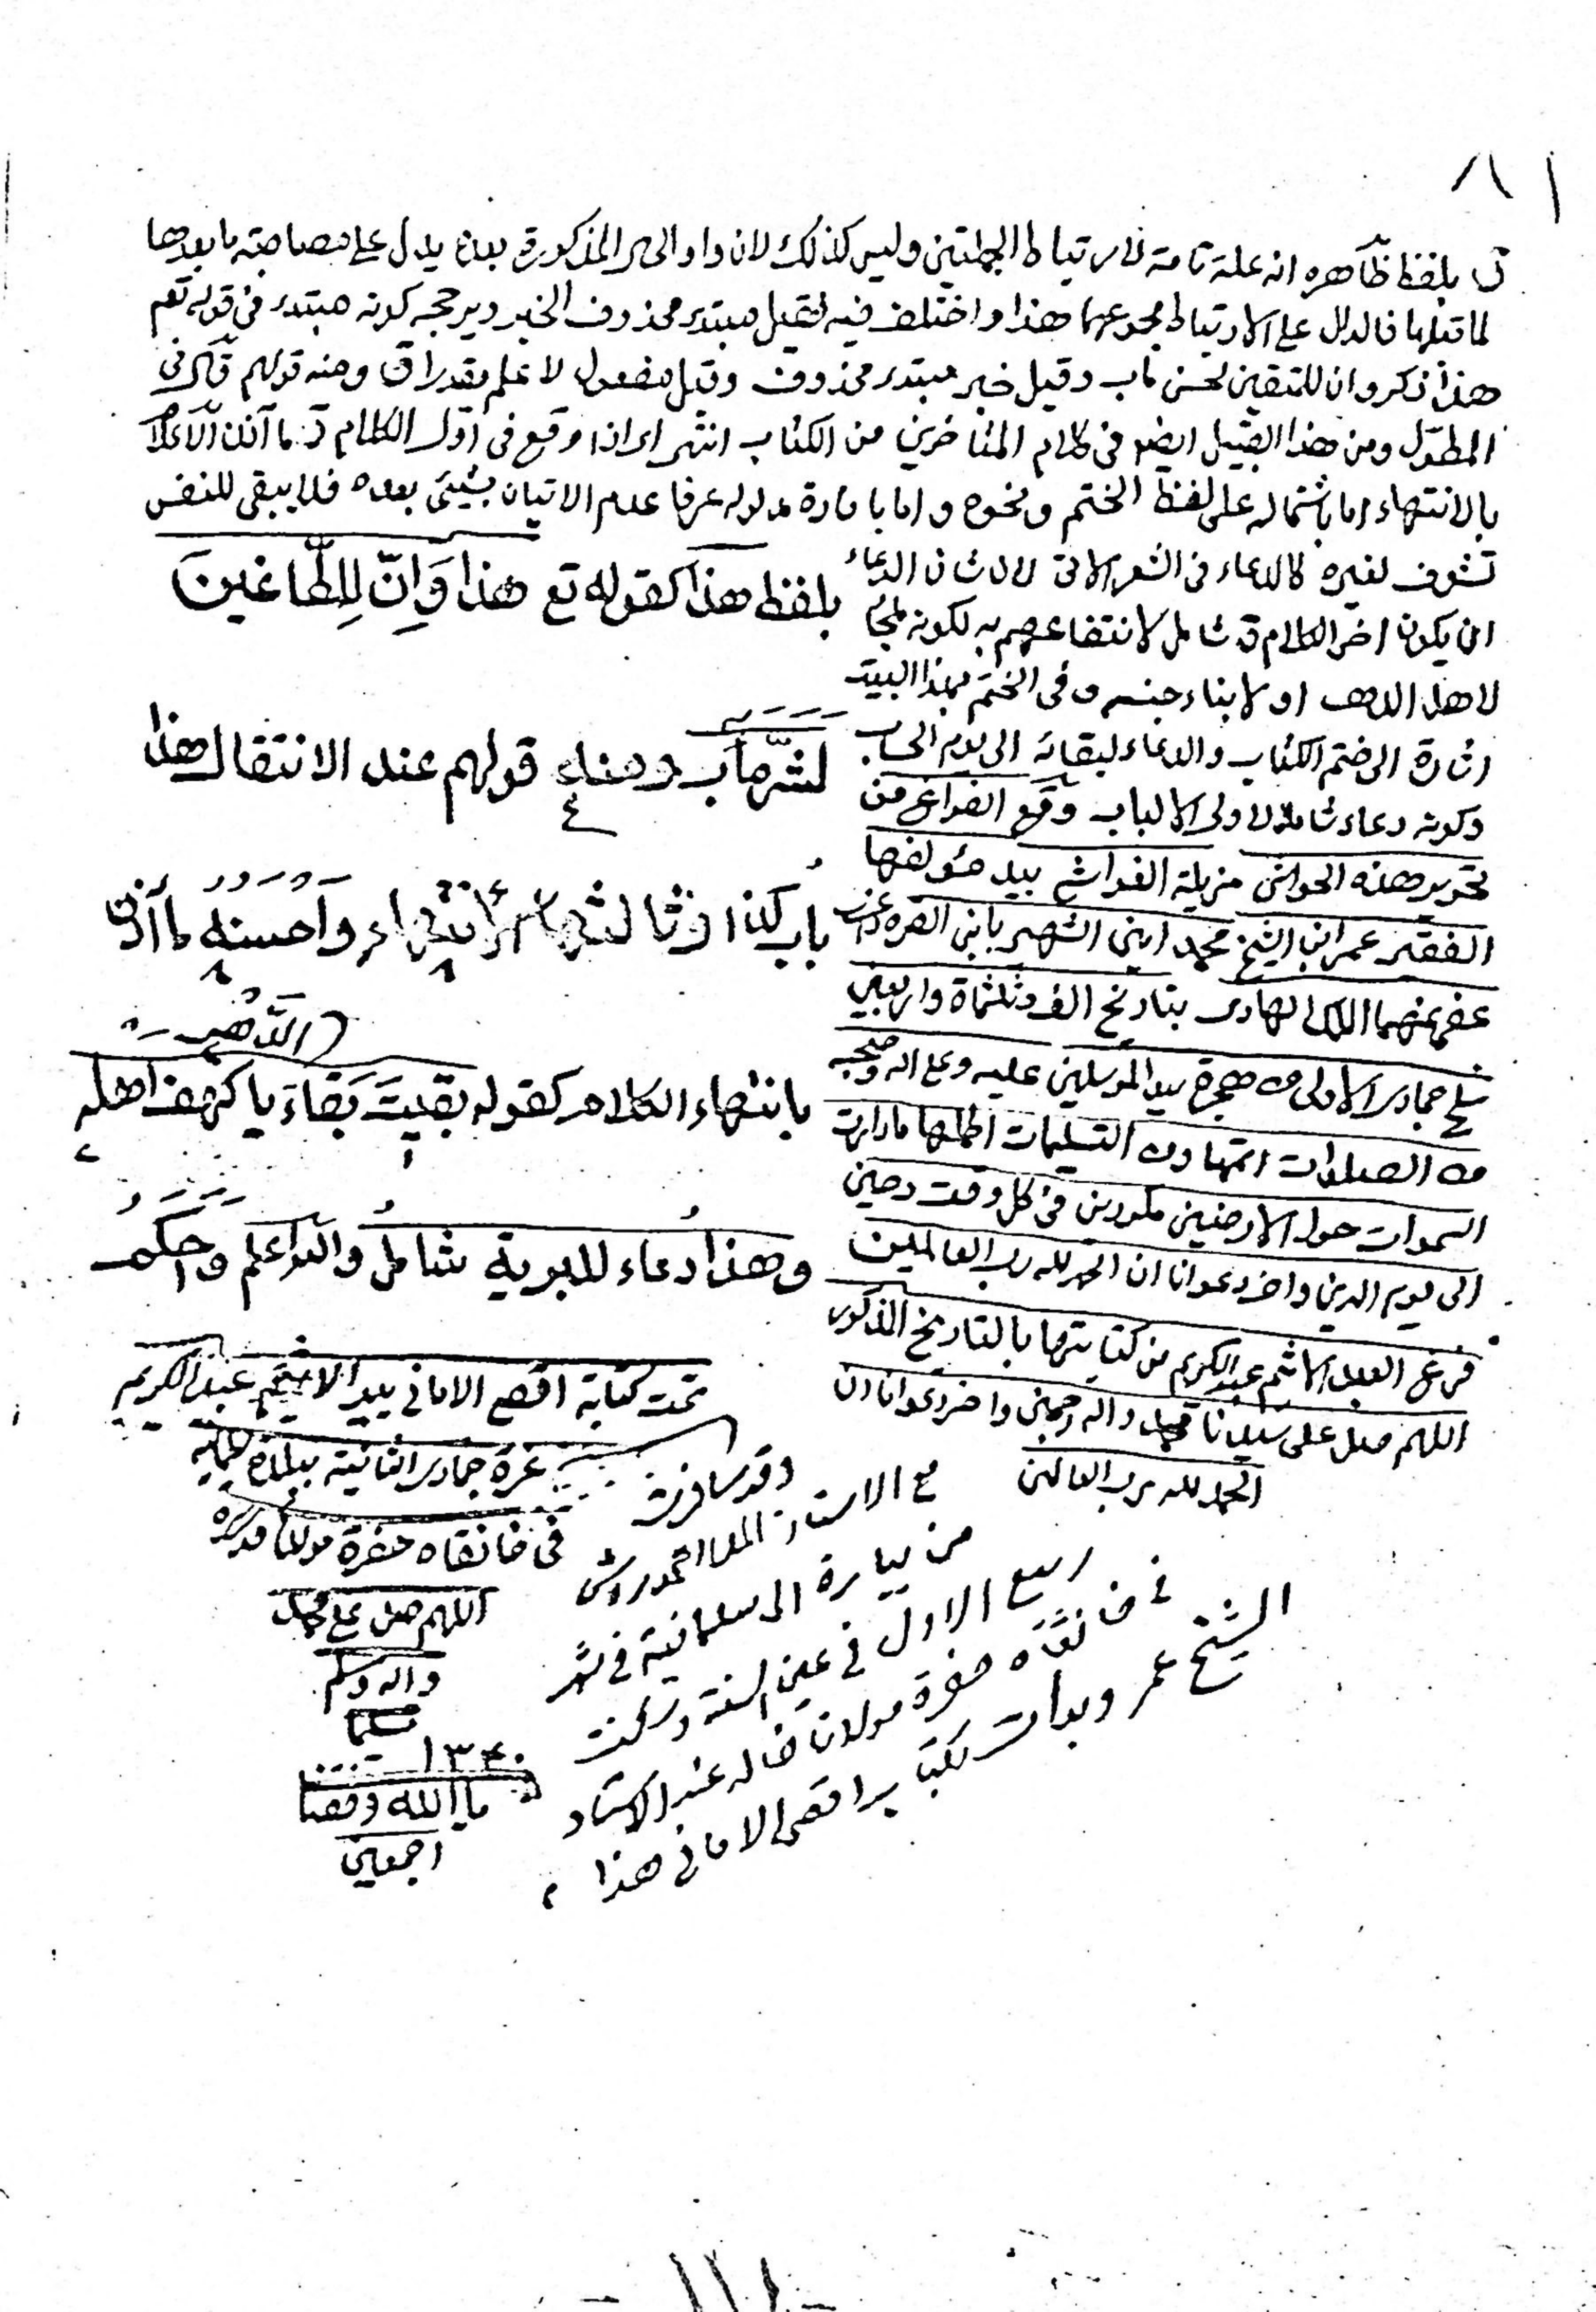 ٨١
ق بلفظ ظاهره انه علة تامة لارتباط الجملتين وليس كذلك لان واو الحال المذكورة بعد يدل على مصاحبة ما بعدها
لما قبلها فالدال على الارتباط مجموعهما هذا واختلف فيه فقيل مبتدء محذوف الخبر ويرجحه كونه مبتدء في قوله تعم
هذا ذكر وان للمتقين لحسن مآب وقيل خبر مبتدء محذوف وقيل مفعول لاعلم مقدرا ق ومنه قولهم قال في
المطول ومن هذا القبيل ايضا في كلام المتأخرين من الكتاب انتهى اى اذا وقع في اول الكلام ق ما آذن الاعلام
بالانتهاء اما باشتماله على لفظ الختم ونحوه واما بافادة مدلوله عرفا عدم الاتيان بشيئ بعده فلا يبقى للنفس
تشوف لغيره كالدعاء في الشعر الاتى لان شان الدعاء
ان يكون اخر الكلام ق شامل لانتفاعهم به لكونه ملجأ
لاهل الدهر او لابناء جنسه وفي الختم بهذا البيت
اشارة الى ختم الكتاب والدعاء لبقائه الى يوم الحساب
وكونه دعاء شاملا لاولى الالباب وقع الفراغ من
تحرير هذه الحواشي مزيلة الغواشي بيد مؤلفها
الفقير عمر ابن الشيخ محمد امين الشهير بابن القره داغي
عفى عنهما الله الهادى بتاريخ الف وثلثمأة واربعين
سلخ جمادى الاولى من هجرة سيد المرسلين عليه وعلى اله وصحبه
من الصلوات اتمها ومن التسليمات اكملها مادامت
السموات حول الارضين مكورين في كل وقت وحين
الى يوم الدين واخر دعوانا ان الحمد لله رب العالمين
فرغ العبد الاثم عبد الكريم من كتابتها بالتاريخ المذكور
اللهم صل على سيدنا محمد واله وصحبه واخر دعوانا ان
الحمد لله رب العالمين
بلفظ هذا كقوله تع هذا وَاِنَّ لِلطَّاغينَ
لَشَرَّ مآب ومنه قولهم عند الانتقال هذا
باب كذا وثالثها الانتهاء واَحسنه ما آذن
(الدَّهر
بانتهاء الكلام كقوله بقيتَ بَقاءَ يا كهف اهله
وهذا دعاء للبرية شامل والله اعلم واحكم
تمت كتابة اقصى الاماني بيد الاثيم عبد الكريم
غرة جمادى الثانية ببلدة سليمانية
في خانقاه حضرة مولانا قدس سره
اللهم صل على محمد
واله وسلم
تسليما
١٣٤٠
يا الله وفقنا
اجمعين
وقد سافرت
مع الاستاذ الملا
من بيارة الى سليمانية في شهر
ربيع الاول في عين السنة وسكنت
في خانقاه حضرة مولانا خالد عند الاستاد
الشيخ عمر وبدأت بكتب
اقصى الاماني هذا